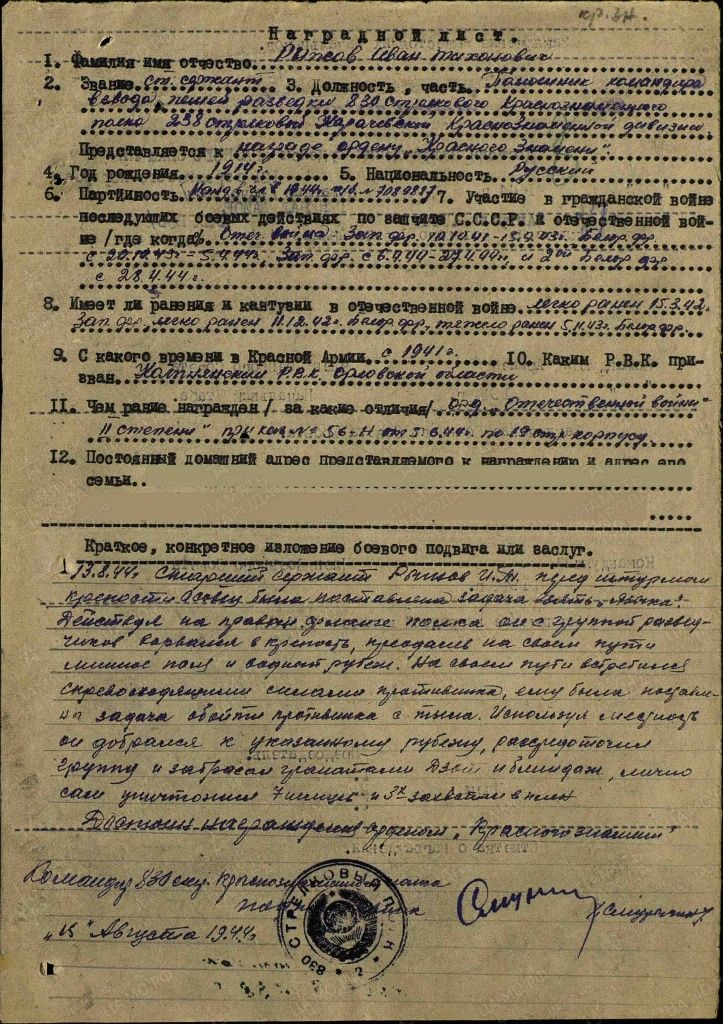 Наградной лист.
1. Фамилия имя отчество. Рыжов Иван Тихонович
2. Звание ст. сержант 3. Должность, часть. Помошник командира
взвода, пешей разведки 830 стрелкового Краснознаменного
полка 238 стрелковой Карачевской Краснознаменной дивизии
Представляется к награде ордену "Красного Знамени".
4. Год рождения. 1914 г. 5. Национальность. Русский
6. Партийность. Канд. в чл. 1944 7. Участие в гражданской войне
последующих боевых действиях по защите С.С.С.Р. и отечественной вой-
не /где когда/. Отеч. война: Зап. фр. 10.10.41 Белор. фр.
с 20.10.43г - 5.4.44г. Зап. фр. с 6.4.44 и 2ой Белор. фр.
с 28.4.44 г.
8. Имеет ли ранения и кантузии в отечественной войне. легко ранен 15.3.42.
Зап. фр., легко ранен 11.12.42г. Белор. фр., тяжело ранен 5.11.43г. Белор. фр.
9. С какого времени в Красной Армии. с 1941 г. 10. Каким Р.В.К. при-
зван. Р.В.К. Орловской области
11. Чем ранее награжден / за какие отличия/ орд. "Отечественной войны
II степени" приказ № 56-Н от 5.6.44г. по 19 стр. корпусу.
12. Постоянный домашний адрес представляемого к награждению и адрес его
семьи..
Краткое, конкретное изложение боевого подвига или заслуг.
13.8.44г. Старший сержант Рыжов И.Т. перед штурмом
крепости Осовец была поставлена задача взять "языка".
Действуя на правом фланге полка он с группой развед-
чиков ворвался в крепость, преодолев на своем пути
минное поля и водный рубеж. На своем пути встретился
с превосходящими силами противника, ему была поставле-
на задача обойти противника с тыла. Используя местность
он добрался к указанному рубежу, рассредоточил
группу и забросал гранатами Дзот и блиндаж, лично
сам уничтожил 7 немцев и 3х захватил в плен
Достоин награждения орденом "Красного знамени"
Командир 830 стр. Краснознаменного полка
"15" Августа 1944г
830 СТРЕЛКОВЫЙ ПОЛК